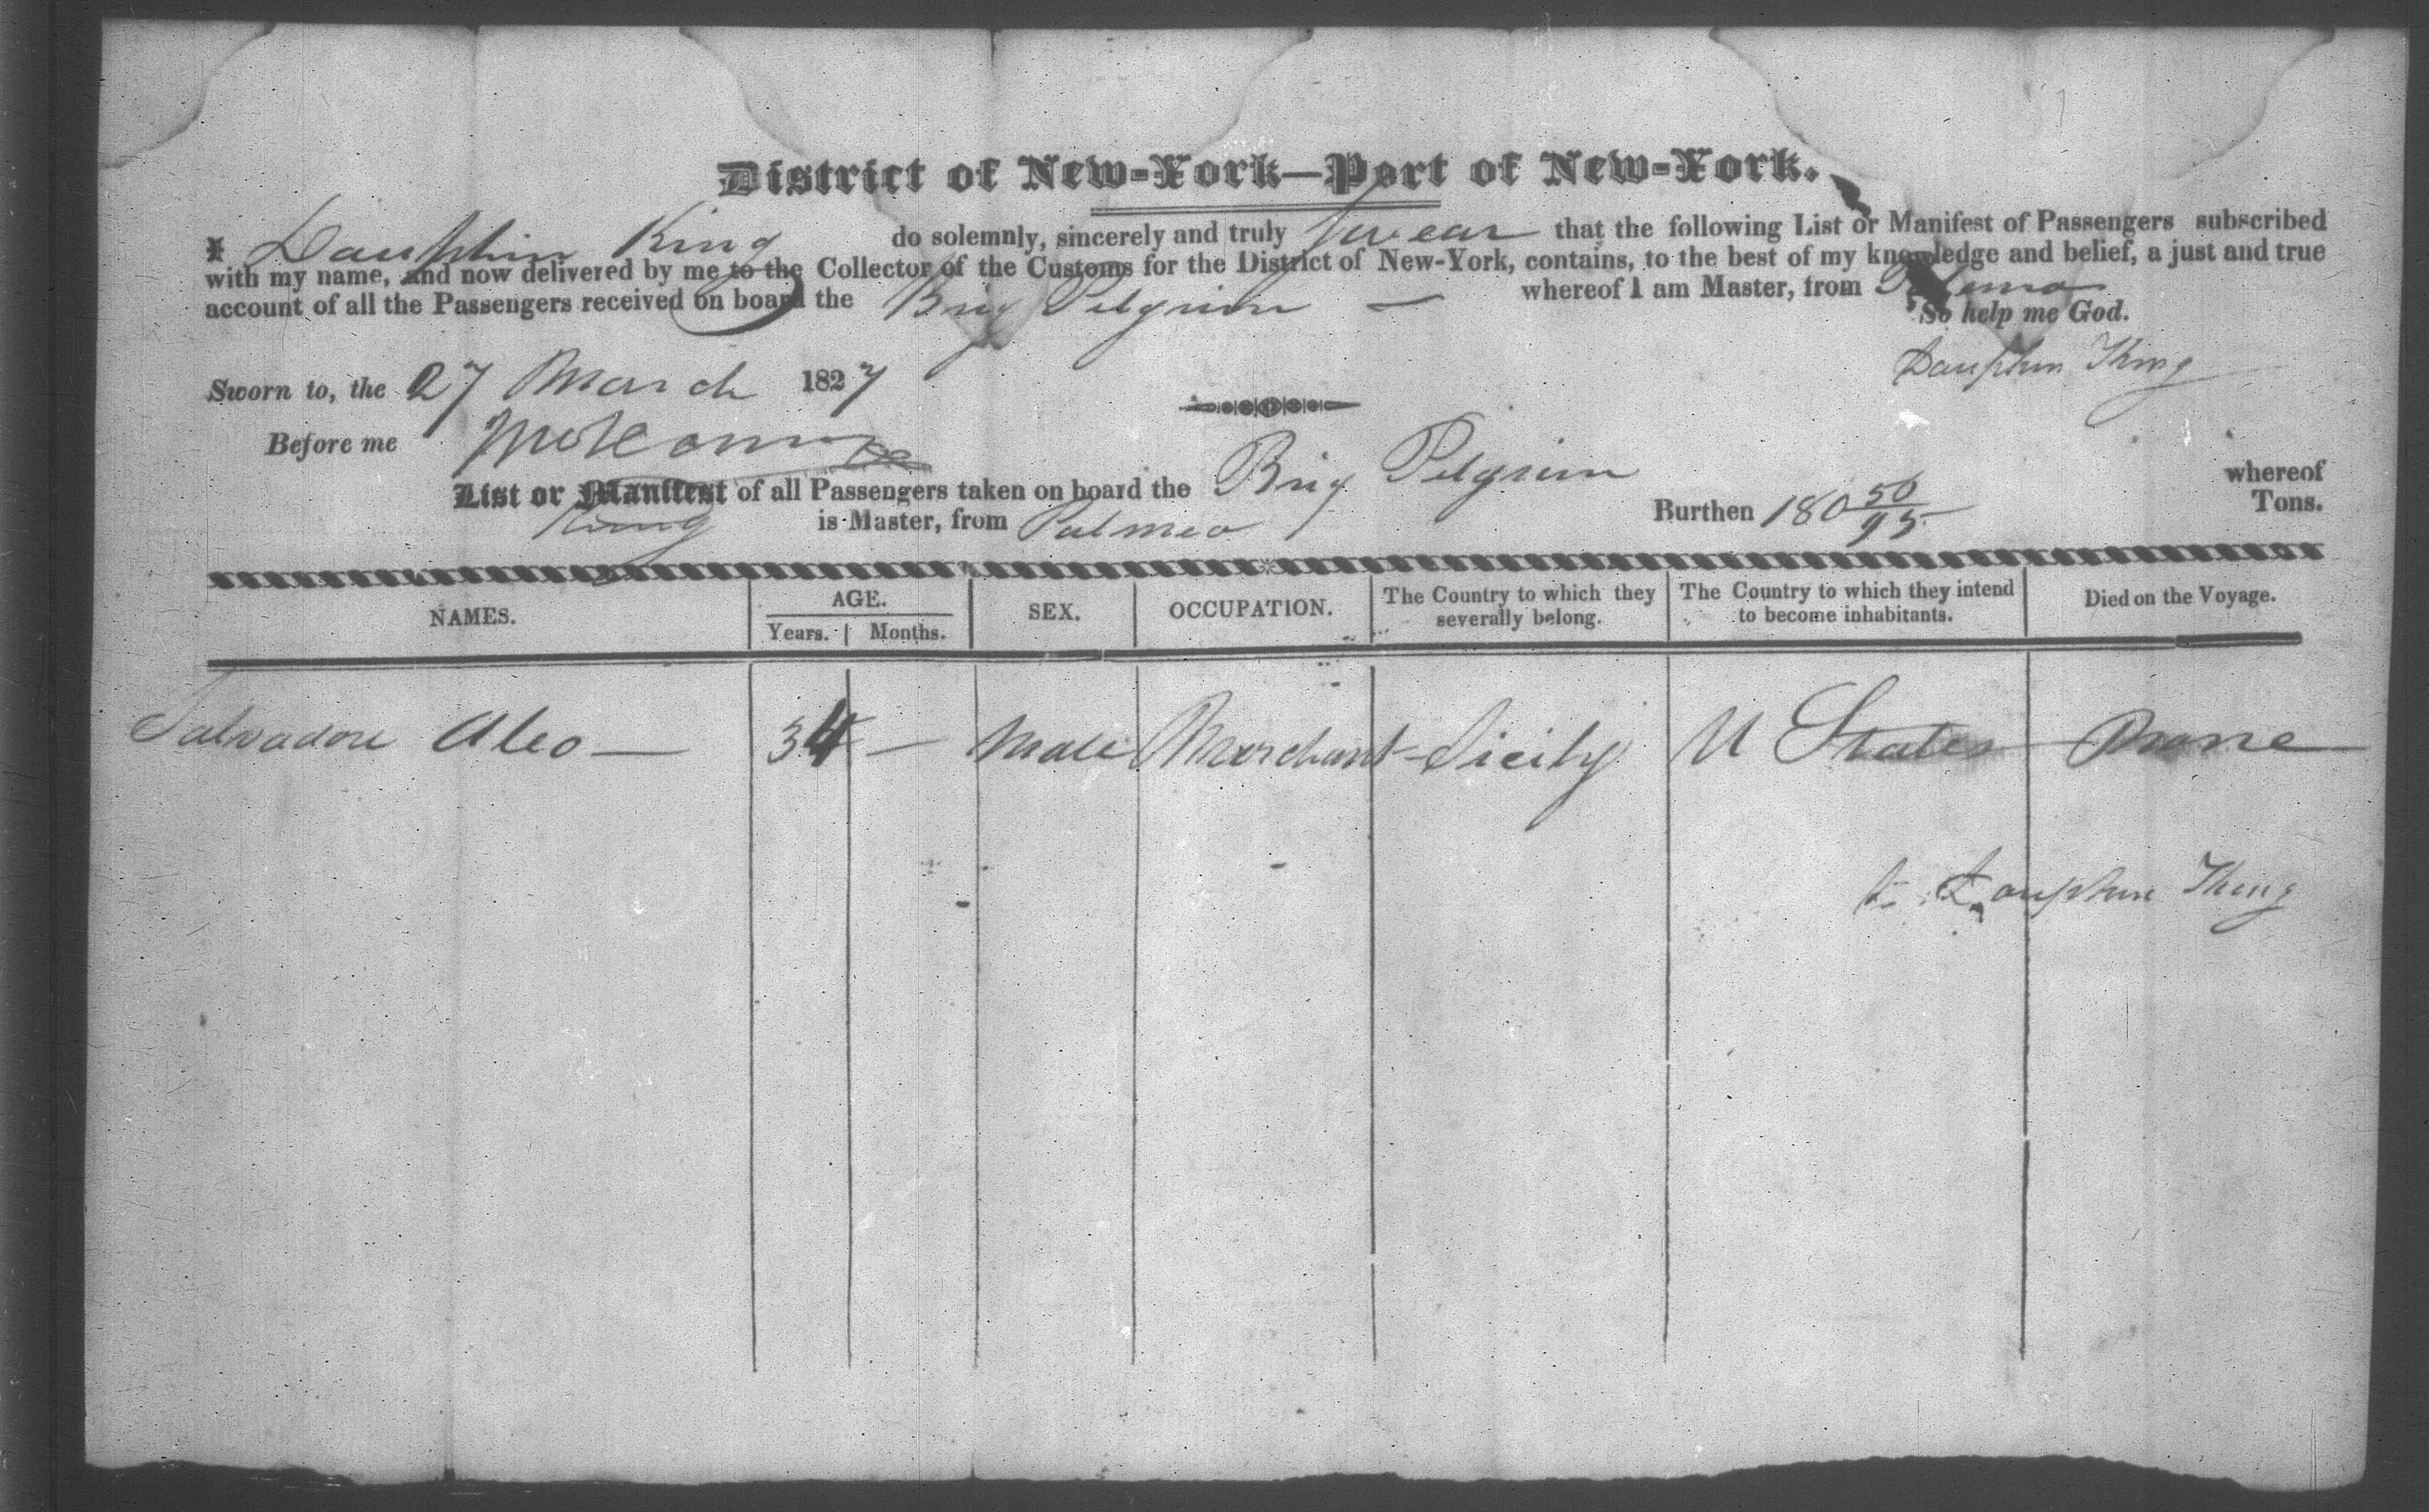 District of New-York—Port of New-York.
I Dauphin King do solemnly, sincerely and truly swear that the following List or Manifest of Passengers subscribed
with my name, and now delivered by me to the Collector of the Customs for the District of New-York, contains, to the best of my knowledge and belief, a just and true
account of all the Passengers received on board the Brig Pilgrim — whereof I am Master, from
So help me God.
Dauphin Thing
Sworn to, the 27 March 1827
Before me
List or Manifest of all Passengers taken on board the Brig Pilgrim whereof
King is Master, from Palmeo Burthen 180 50/95 Tons.
NAMES. AGE. SEX. OCCUPATION. The Country to which they severally belong. The Country to which they intend to become inhabitants. Died on the Voyage.
Years. Months.
Salvadore Aleo — 34 — Male Merchant Sicily U States None
Dauphin Thing